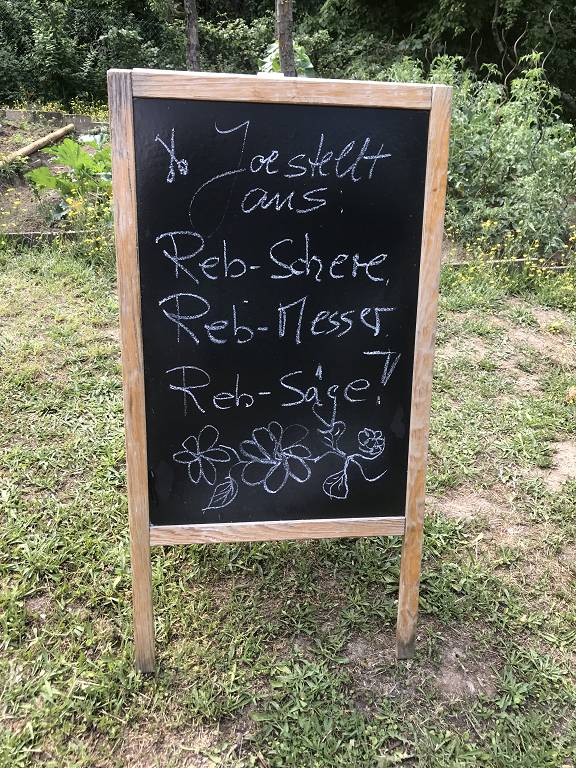 Joe stellt
aus:
Reb-Schere,
Reb-Messer
Reb-Säge!